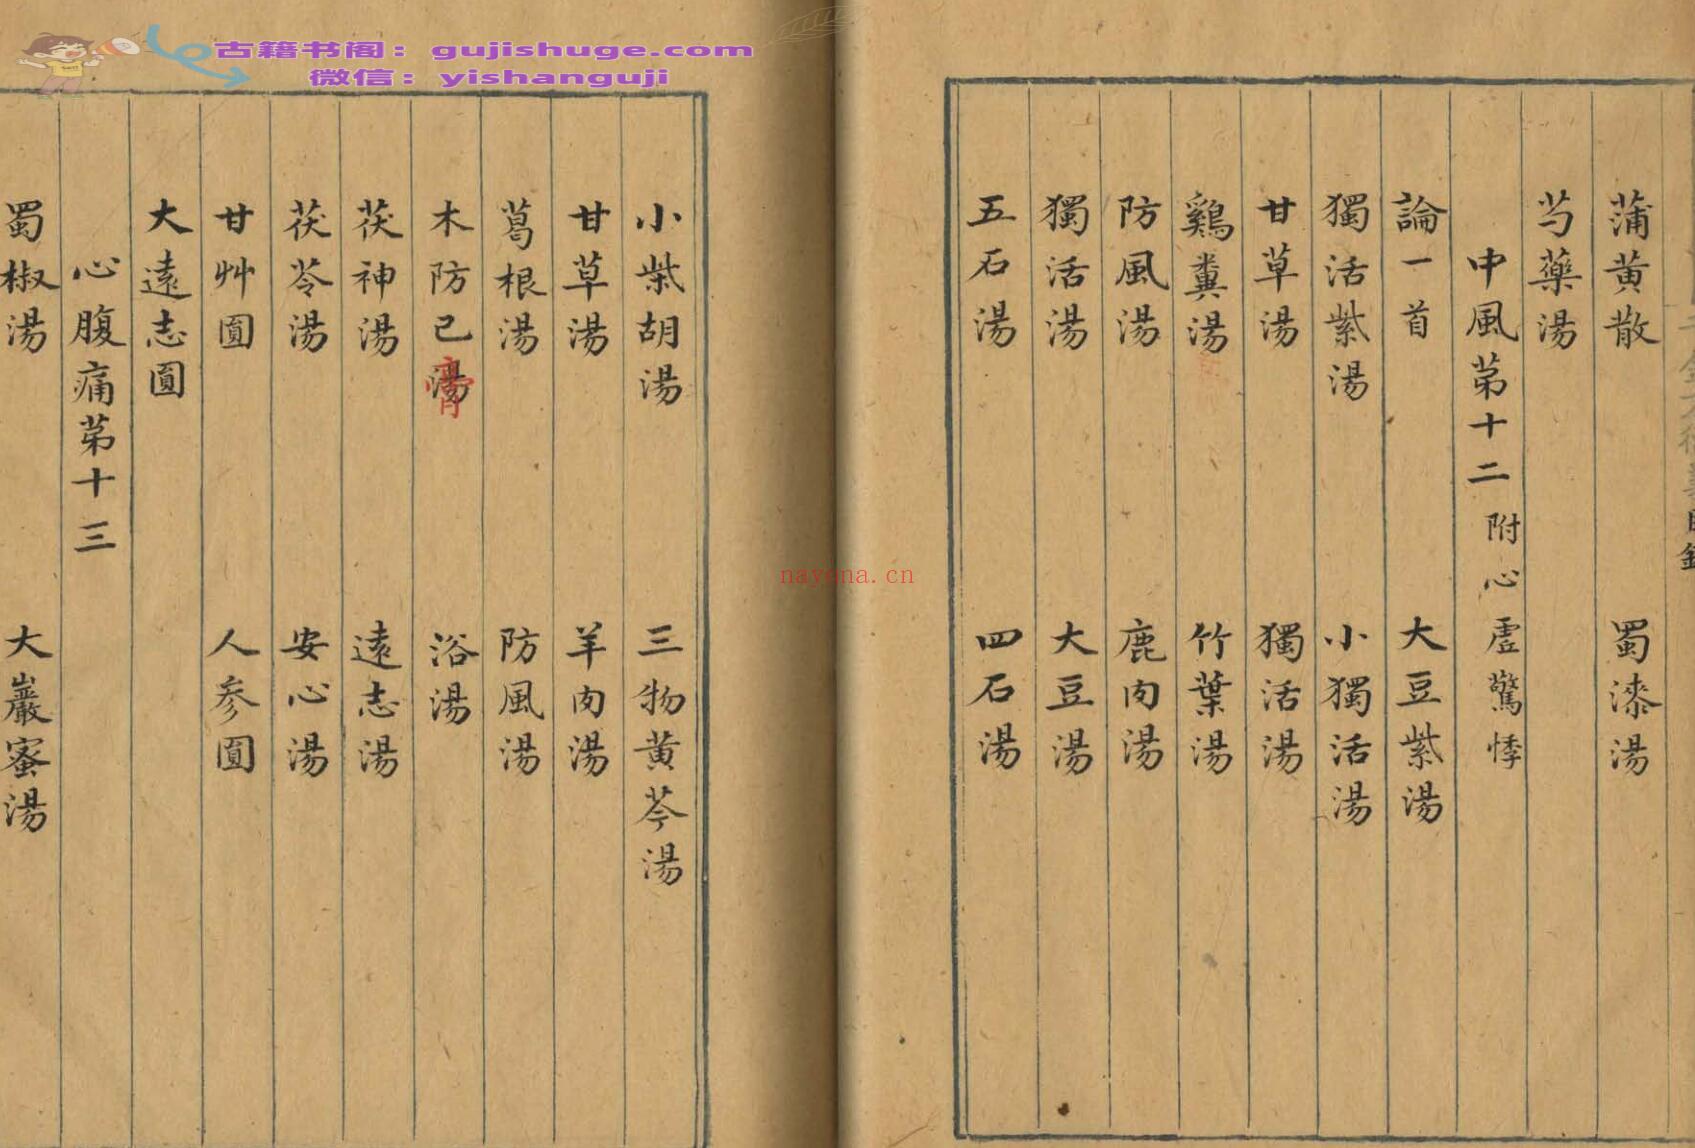 古籍书阁：gujishuge.com
微信：yishanguji
蒲黄散 蜀漆湯
芍藥湯
中風苐十二 附心虛驚悸
論一首 大豆紫湯
獨活紫湯 小獨活湯
甘草湯 獨活湯
鷄糞湯 竹葉湯
防風湯 鹿肉湯
獨活湯 大豆湯
五石湯 四石湯
小柴胡湯 三物黄芩湯
甘草湯 羊肉湯
葛根湯 防風湯
木防己膏 浴湯
茯神湯 遠志湯
茯苓湯 安心湯
甘艸圓 人參圓
大遠志圓
心腹痛苐十三
蜀椒湯 大巖蜜湯
nayona.cn